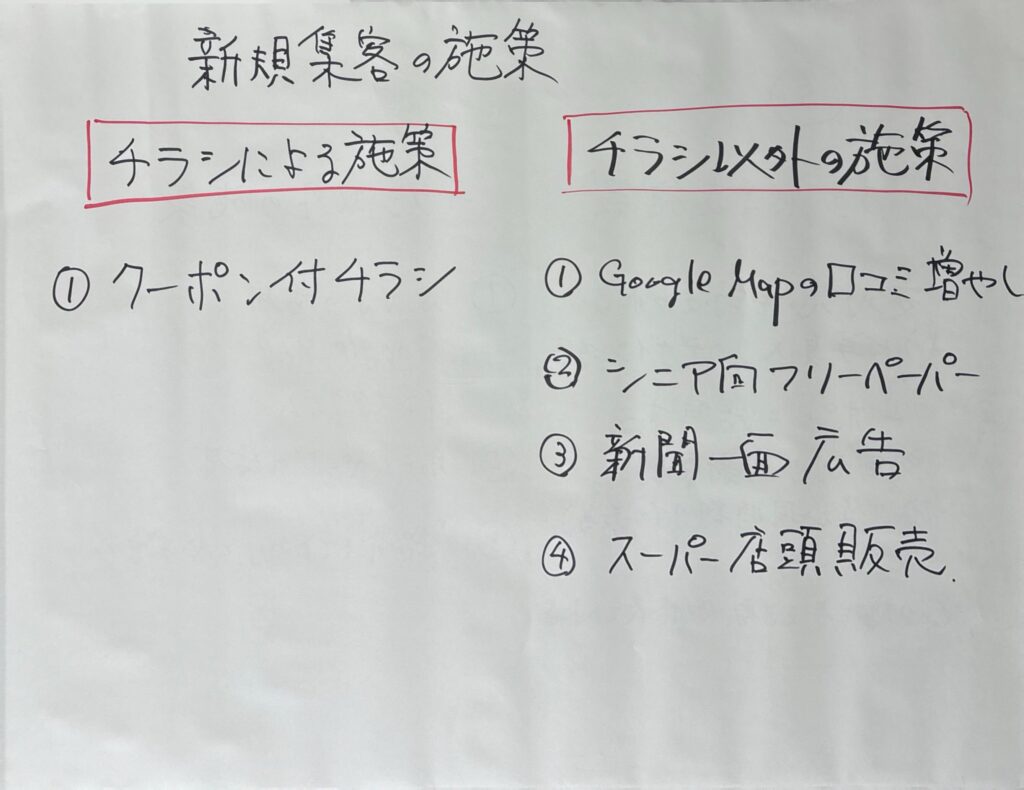 新規集客の施策
チラシによる施策
① クーポン付チラシ
チラシ以外の施策
① Google Mapの口コミ増やし
② シニア向フリーペーパー
③ 新聞一面広告
④ スーパー店頭販売.